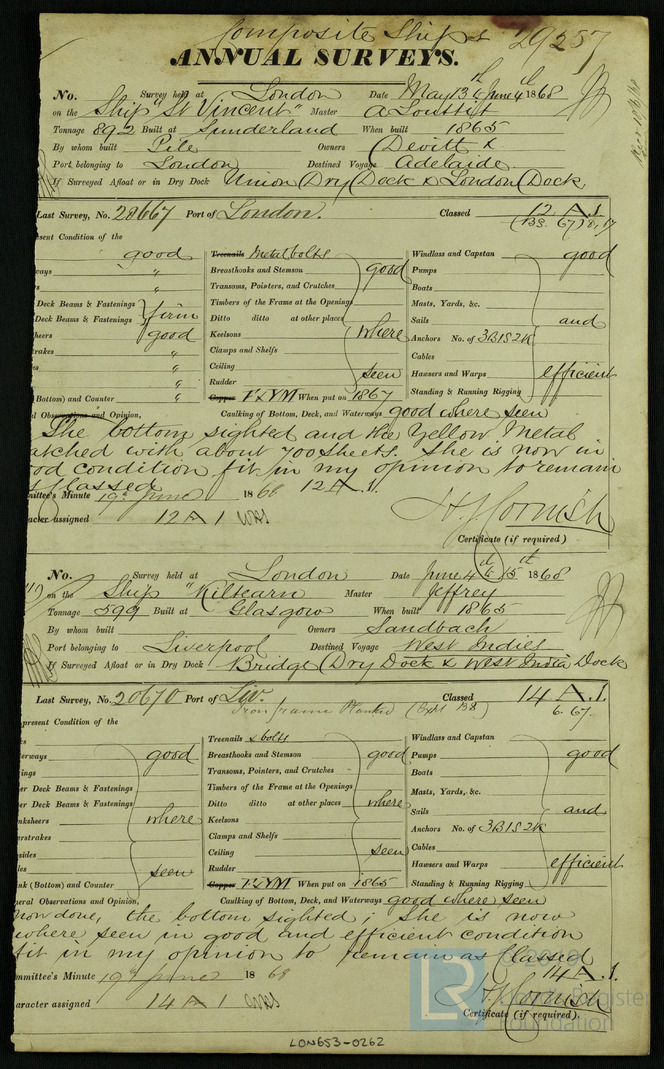 Composite Ships 29257
ANNUAL SURVEYS.
No. Survey held at London Date May 13th & June 4th 1868
on the Ship "St Vincent" Master
Tonnage 892 Built at Sunderland When built 1865
By whom built Pile Owners Devitt &
Port belonging to London Destined Voyage Adelaide
If Surveyed Afloat or in Dry Dock Union Dry Dock & London Dock
Last Survey, No. 28667 Port of London. Classed 12 A.1.
sent Condition of the
good Treenails Metal bolts Windlass and Capstan good
ways " Breasthooks and Stemson good Pumps
s " Transoms, Pointers, and Crutches Boats
Deck Beams & Fastenings Timbers of the Frame at the Openings Masts, Yards, &c.
Deck Beams & Fastenings firm Ditto ditto at other places Sails and
heers good Keelsons where Anchors No. of 3B1S2K
rakes " Clamps and Shelfs Cables
" Ceiling seen Hawsers and Warps efficient
" Rudder Standing & Running Rigging
Bottom) and Counter " Copper F&YM When put on 1867
l Observations and Opinion, Caulking of Bottom, Deck, and Waterways good where seen
She bottom sighted and the Yellow Metal
atched with about 700 sheets. She is now in
od condition fit in my opinion to remain
s Classed 12 A.1.
mittee's Minute 19th June 1868
acter assigned 12 A 1
H. J. Cornish
Certificate (if required)
No. Survey held at London Date June 4th & 15th 1868
on the Ship "Kiltearn" Master Jeffrey
Tonnage 599 Built at Glasgow When built 1865
By whom built Owners Sandbach
Port belonging to Liverpool Destined Voyage West Indies
If Surveyed Afloat or in Dry Dock Bridge Dry Dock & West India Dock
Last Survey, No. 20670 Port of Liv. Classed 14 A.1.
Iron frame Planked 6. 67.
present Condition of the
Treenails & bolts Windlass and Capstan
erways good Breasthooks and Stemson good Pumps good
ings Transoms, Pointers, and Crutches Boats
er Deck Beams & Fastenings Timbers of the Frame at the Openings Masts, Yards, &c.
er Deck Beams & Fastenings Ditto ditto at other places where Sails and
nksheers where Keelsons Anchors No. of 3B1S2K
erstrakes Clamps and Shelfs Cables
sides Ceiling seen Hawsers and Warps efficient
les seen Rudder Standing & Running Rigging
nk (Bottom) and Counter Copper F&YM When put on 1865
eral Observations and Opinion, Caulking of Bottom, Deck, and Waterways good where seen
now done, the bottom sighted; She is now
where seen in good and efficient condition
fit in my opinion to remain as Classed
14 A.1.
mmittee's Minute 19th June 1868
aracter assigned 14 A 1
H. J. Cornish
Certificate (if required).
© 2019
LR
Lloyd's Register
Foundation
LON653-0262